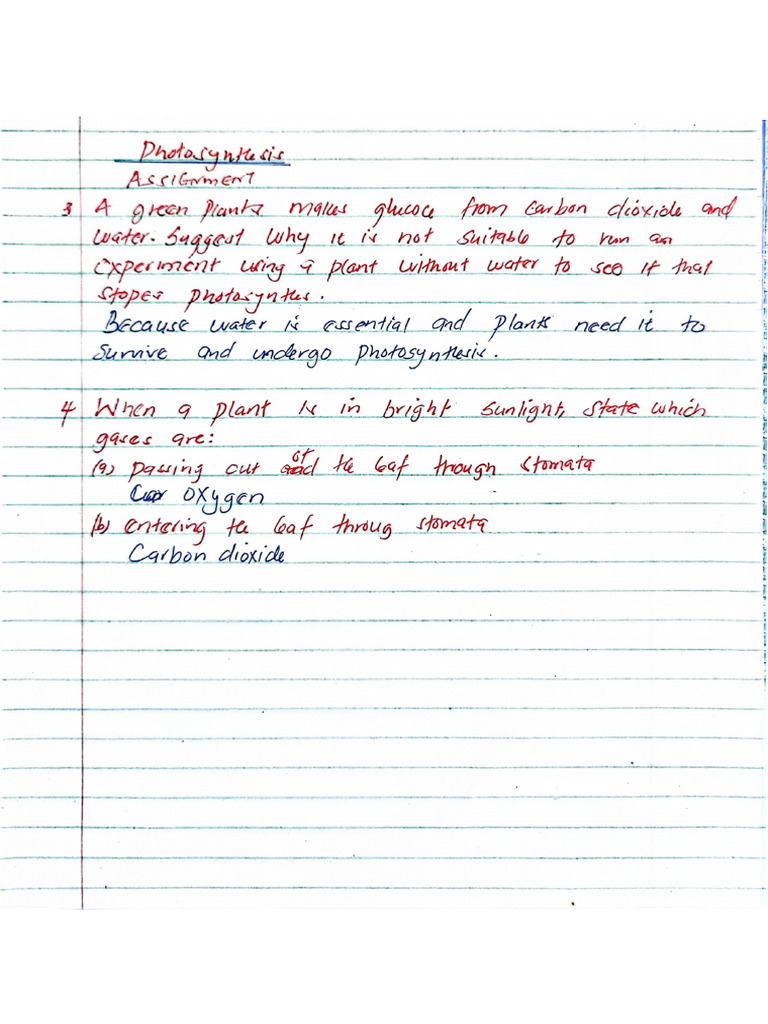 Photosynthesis
Assignment
3 A green plants makes glucoce from carbon dioxide and
water. Suggest why it is not suitable to run an
experiment using a plant without water to see if that
stopes photosynthes.
Because water is essential and plants need it to
survive and undergo photosynthesis.
4 When a plant is in bright sunlight, state which
gases are:
(a) passing out of the leaf through stomata
Oxygen
(b) entering the leaf throug stomata
Carbon dioxide